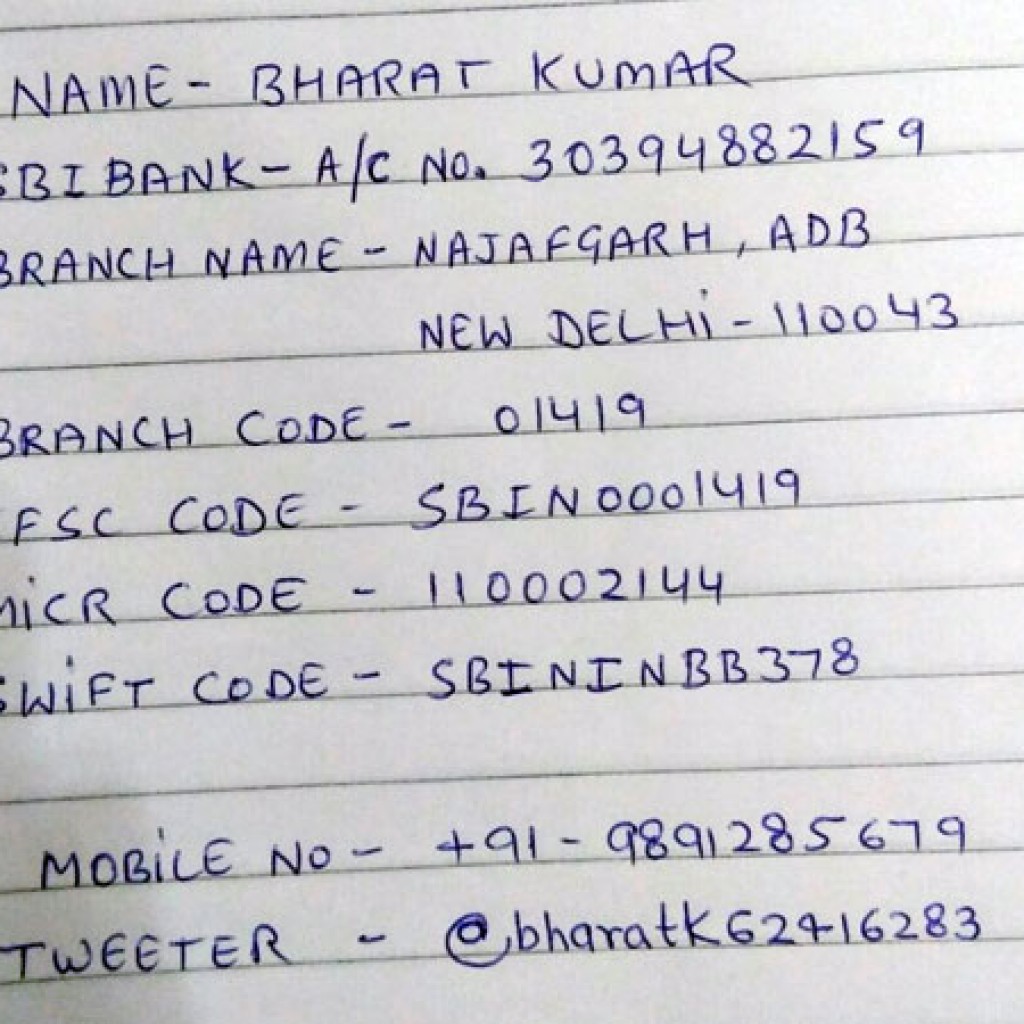 NAME - BHARAT KUMAR
SBI BANK - A/C NO. 30394882159
BRANCH NAME - NAJAFGARH, ADB
NEW DELHi - 110043
BRANCH CODE - 01419
IFSC CODE - SBIN0001419
MiCR CODE - 110002144
SWiFT CODE - SBININBB378
MOBiLE NO - +91 - 9891285679
TWEETER - @bharatk62416283